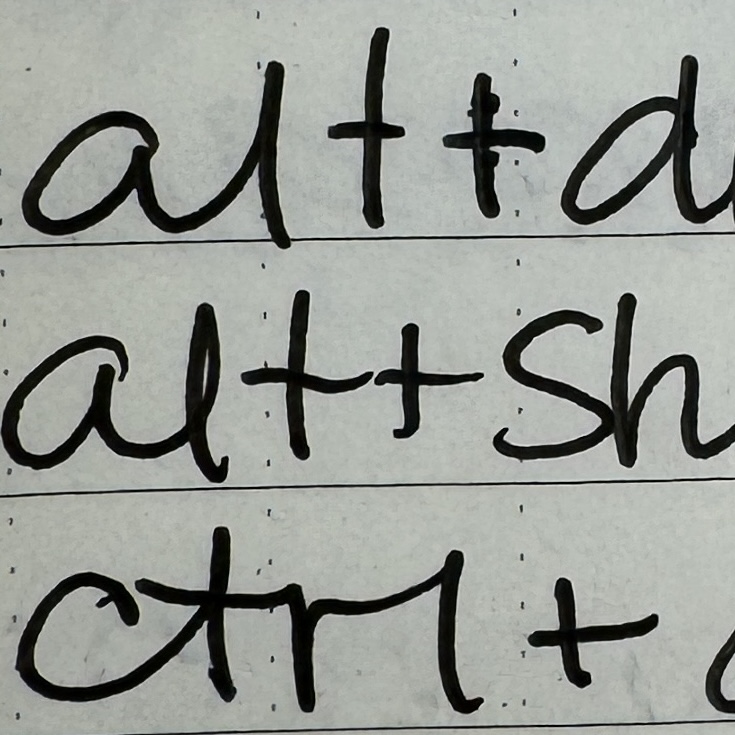 alt + d
alt + Sh
ctrl +